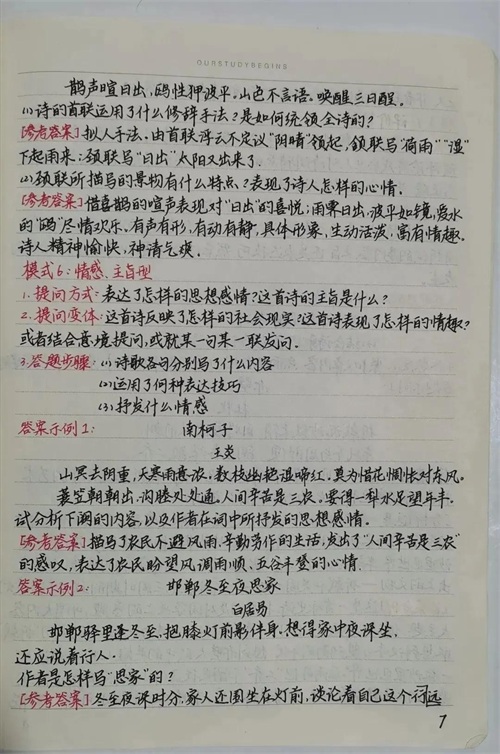 OURSTUDYBEGINS
鹊声喧日出，鸥性狎波平。山色不言语，唤醒三日酲。
(1)诗的首联运用了什么修辞手法？是如何统领全诗的？
[参考答案]拟人手法。由首联浮云不定议“阴晴”领起，颔联写“荷雨”“湿”
下起雨来；颈联写“日出”太阳又出来了.
(2)颈联所描写的景物有什么特点？表现了诗人怎样的心情。
[参考答案]借喜鹊的喧声表现对“日出”的喜悦；雨霁日出，波平如镜，爱水
的“鸥”尽情欢乐。有声有形，有动有静，具体形象，生动活泼，富有情趣。
诗人精神愉快，神清气爽。
模式6：情感、主旨型
1.提问方式：表达了怎样的思想感情？这首诗的主旨是什么？
2.提问变体：这首诗反映了怎样的社会现实？这首诗表现了怎样的情趣？
或者结合意境提问，或就某一句某一联发问。
3.答题步骤：(1)诗歌各句分别写了什么内容
(2)运用了何种表达技巧
(3)抒发什么情感
答案示例1：南柯子
王炎
山冥云阴重，天寒雨意浓。数枝幽艳湿啼红。莫为惜花惆怅对东风。
蓑笠朝朝出，沟塍处处通。人间辛苦是三农。要得一犁水足望年丰。
试分析下阕的内容，以及作者在词中所抒发的思想感情。
[参考答案]描写了农民不避风雨、辛勤劳作的生活，发出了“人间辛苦是三农”
的感叹，表达了农民盼望风调雨顺、五谷丰登的心情.
答案示例2：邯郸冬至夜思家
白居易
邯郸驿里逢冬至，抱膝灯前影伴身。想得家中夜深坐，
还应说着行人.
作者是怎样写“思家”的？
[参考答案]冬至夜深时分，家人还围坐在灯前，谈论着自己这个行远
7